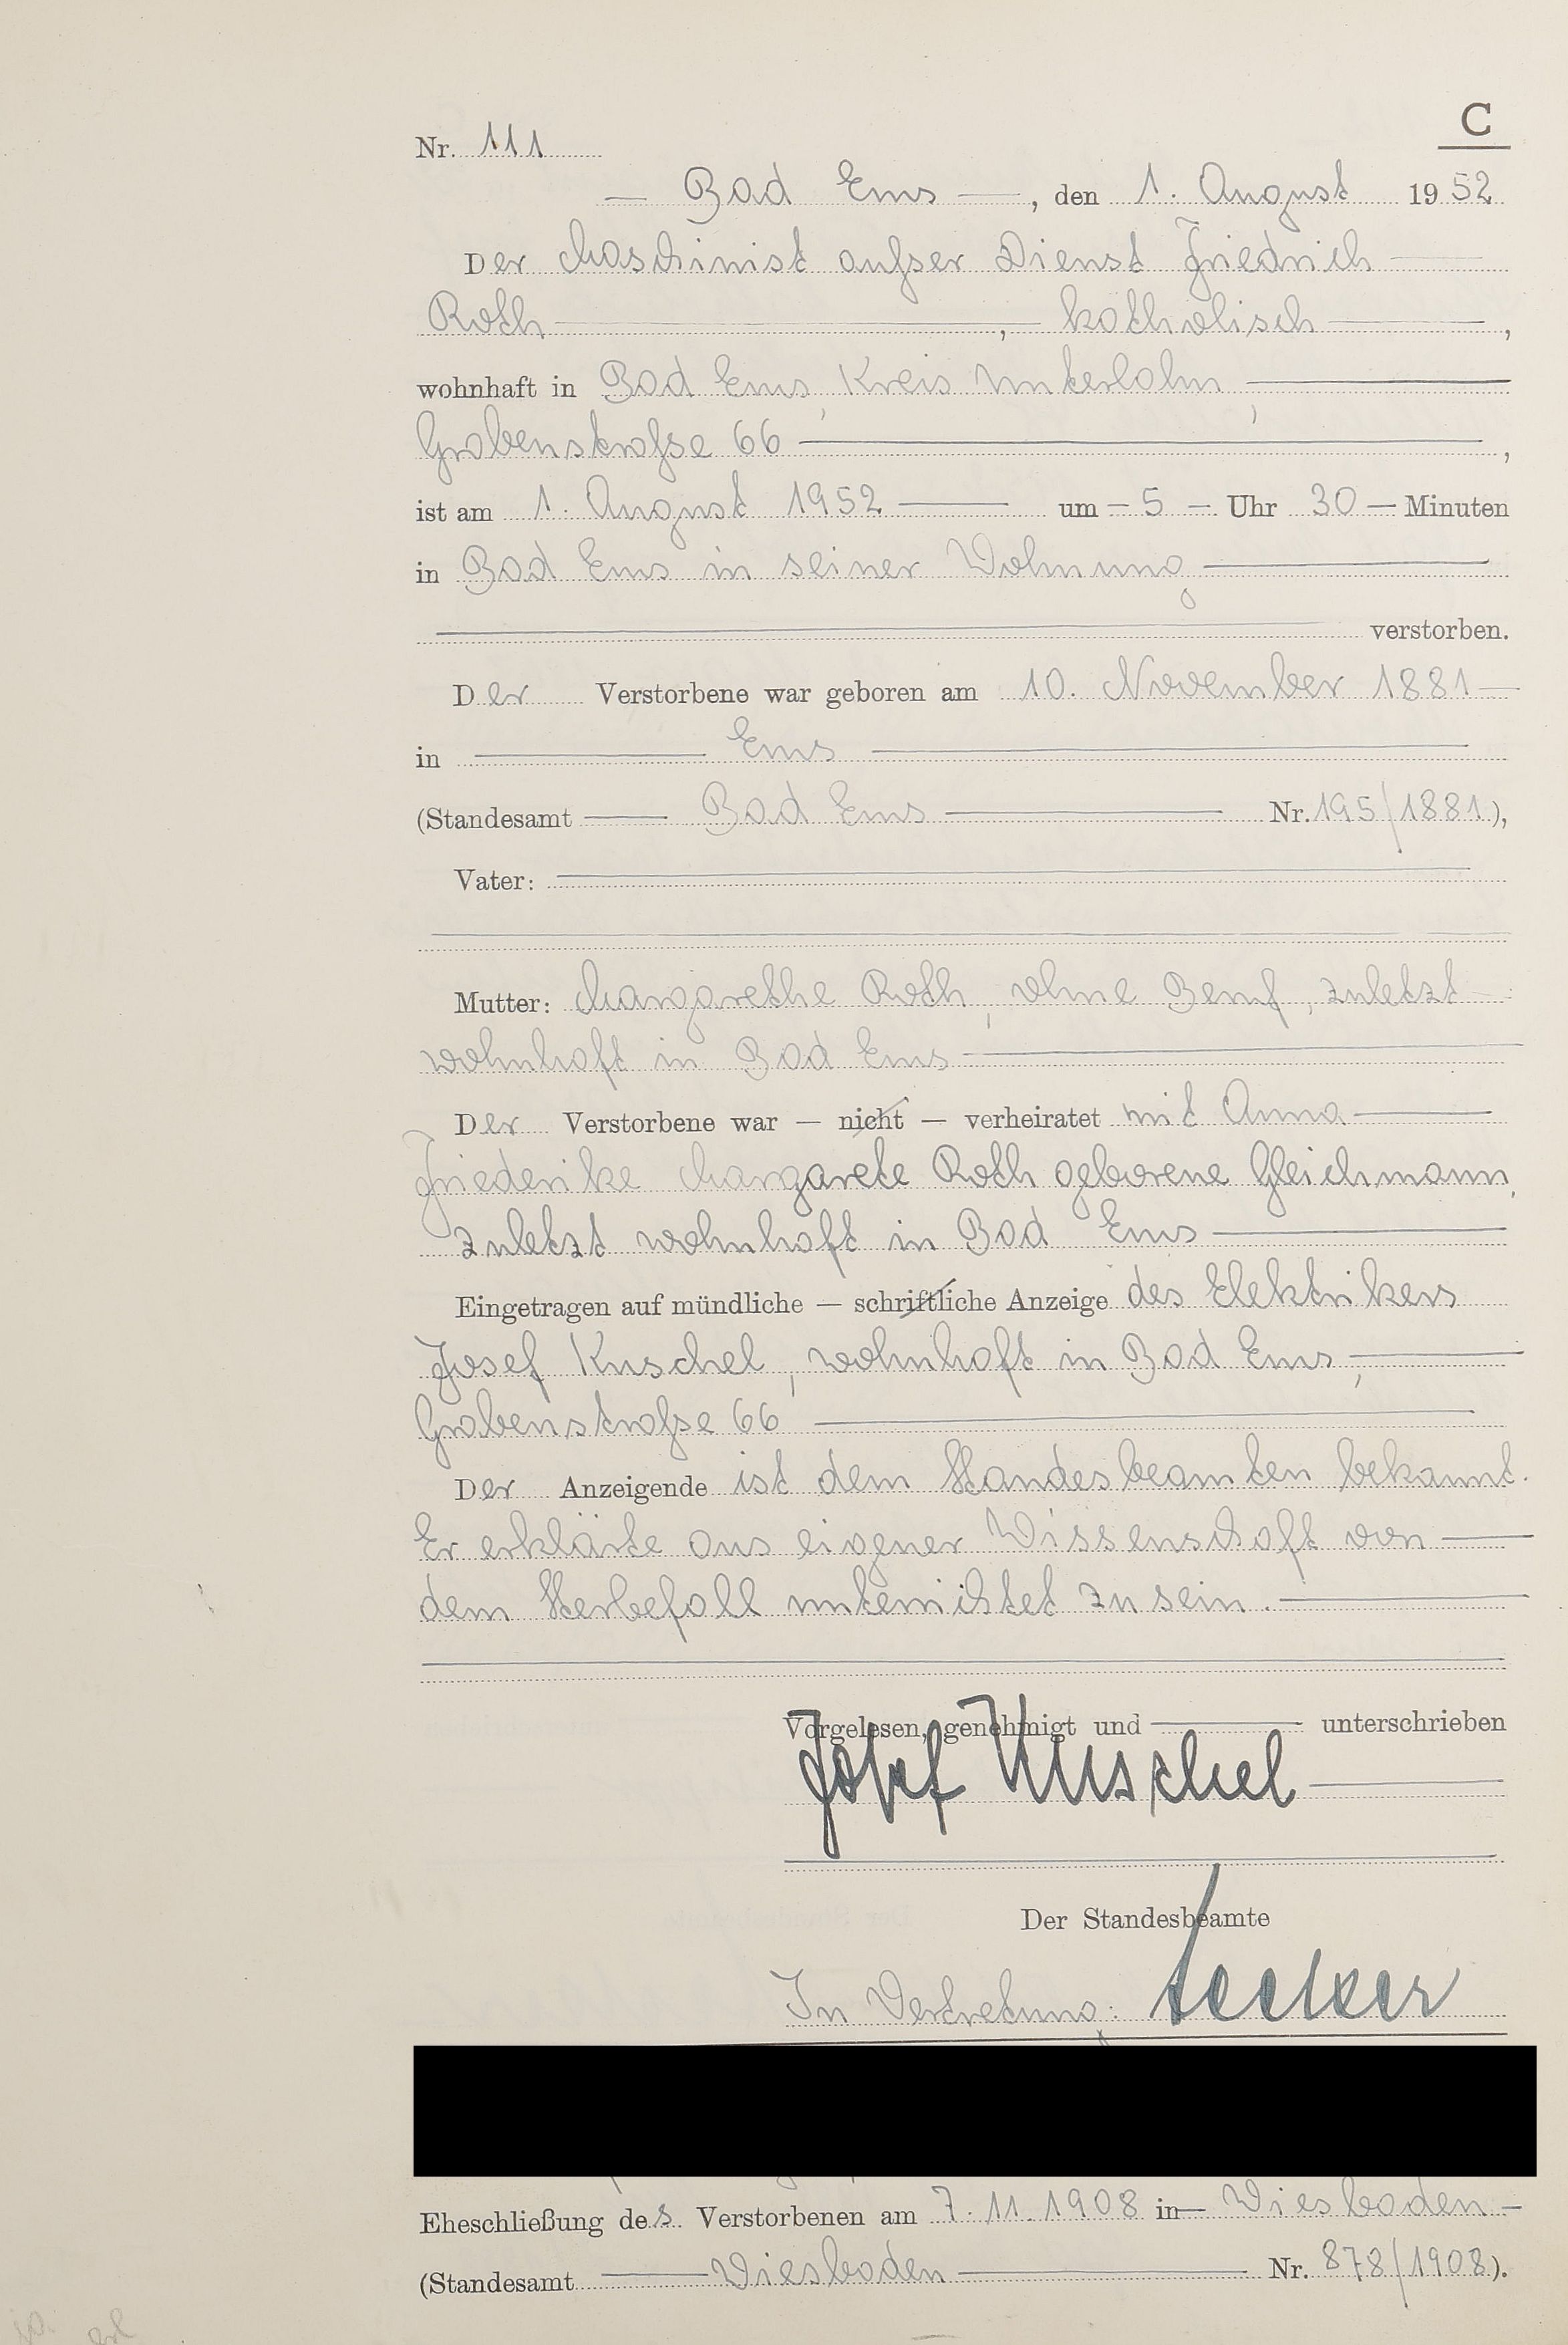 C
Nr. 111
— Bad Ems —, den 1. August 1952
Der Maschinist außer Dienst Friedrich —
Roth —, — katholisch —,
wohnhaft in Bad Ems, Kreis Unterlahn, —
Grabenstraße 66 —,
ist am 1. August 1952 — um — 5 — Uhr 30 — Minuten
in Bad Ems in seiner Wohnung —
— verstorben.
Der Verstorbene war geboren am 10. November 1881 —
in — Ems —
(Standesamt — Bad Ems — Nr. 195/1881),
Vater: —
Mutter: Margarethe Roth, ohne Beruf, zuletzt —
wohnhaft in Bad Ems —
Der Verstorbene war — nicht — verheiratet mit Anna —
Friederike Margarete Roth geborene Gleichmann,
zuletzt wohnhaft in Bad Ems —
Eingetragen auf mündliche — schriftliche Anzeige des Elektrikers
Josef Kuschel, wohnhaft in Bad Ems, —
Grabenstraße 66 —
Der Anzeigende ist dem Standesbeamten bekannt.
Er erklärte aus eigener Wissenschaft von —
dem Sterbefall unterrichtet zu sein. —
Vorgelesen, genehmigt und — unterschrieben
Josef Kuschel —
Der Standesbeamte
In Vertretung:
Eheschließung des Verstorbenen am 7.11.1908 in — Wiesbaden —
(Standesamt — Wiesbaden — Nr. 878/1908).